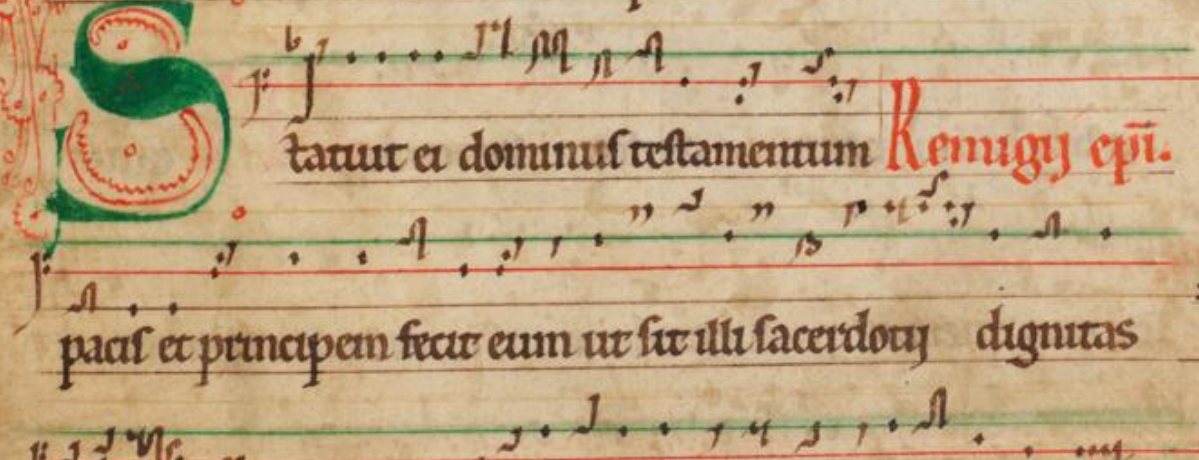 Statuit ei dominus testamentum Remigij ep̄i.
pacis et principem fecit eum ut sit illi sacerdotij dignitas